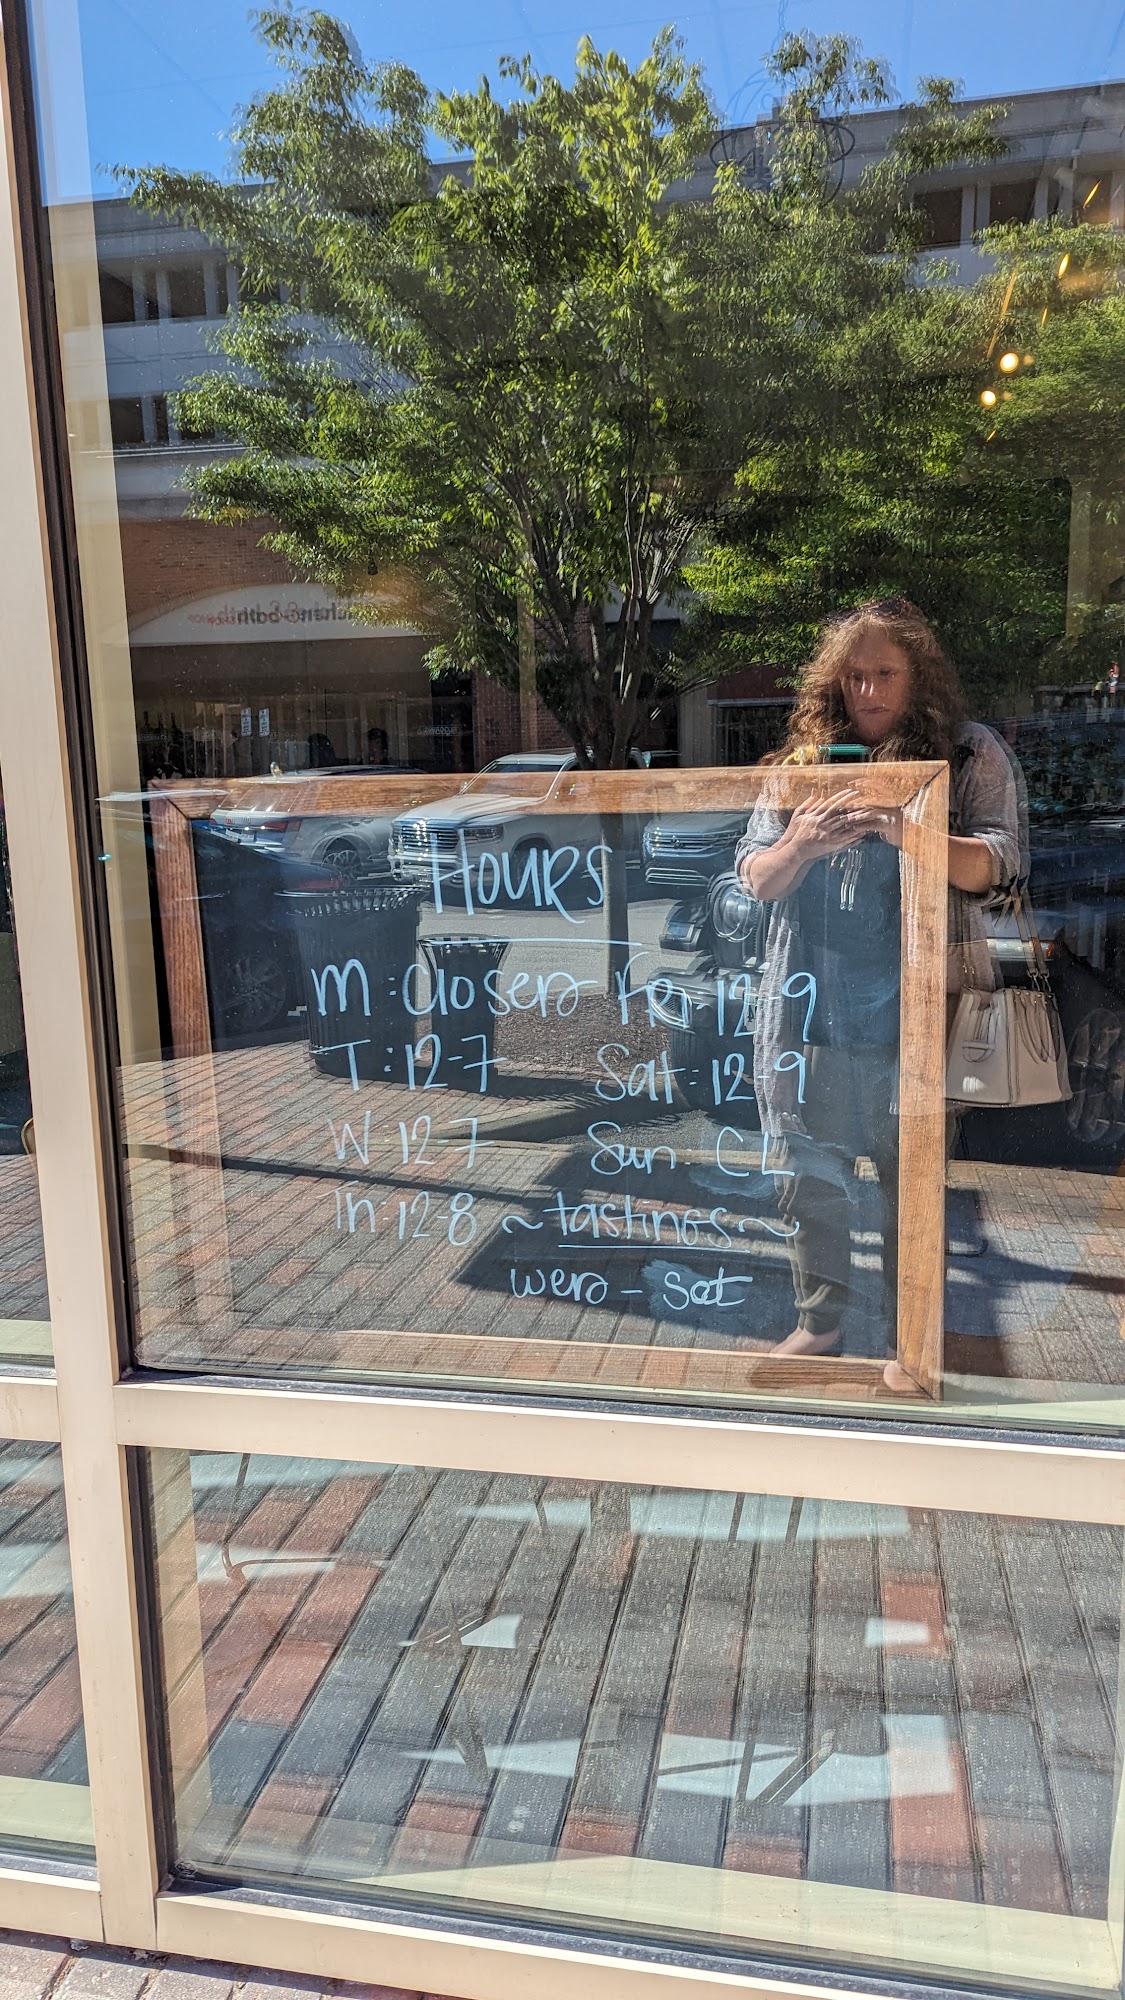 Hours
M: Closed Fri: 12-9
T: 12-7 Sat: 12-9
W: 12-7 Sun: CL
Th: 12-8 ~tastings~
wed - sat